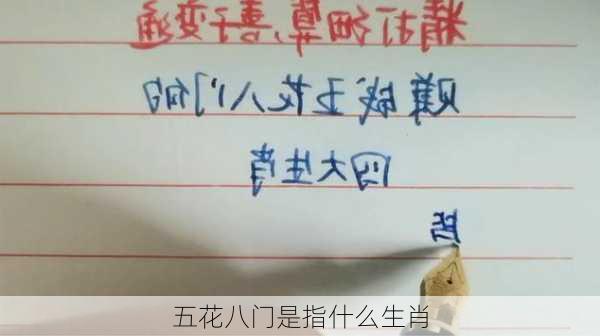 精打细算,善于变通
赚钱五花八门的
四大生肖
五花八门是指什么生肖